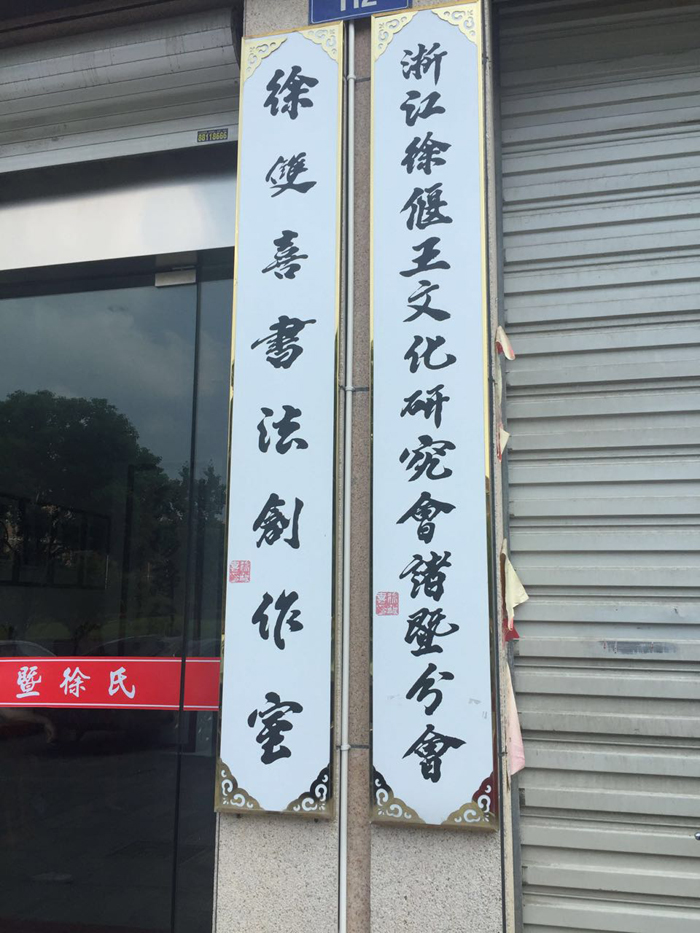 112
浙江徐偃王文化研究會諸暨分會
徐雙喜書法創作室
88118666
暨徐氏